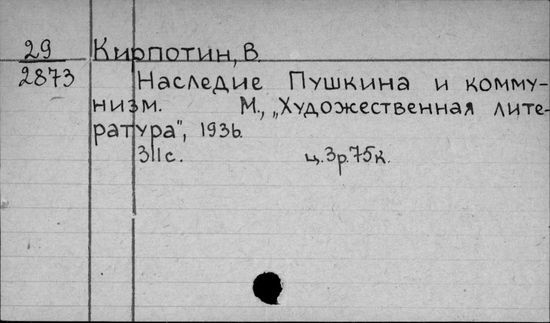 29
2873
Кирпотин, В.
Наследие Пушкина и комму-
низм. М., „Художественная лите-
ратура", 1936.
311с. ц.3р.75к.